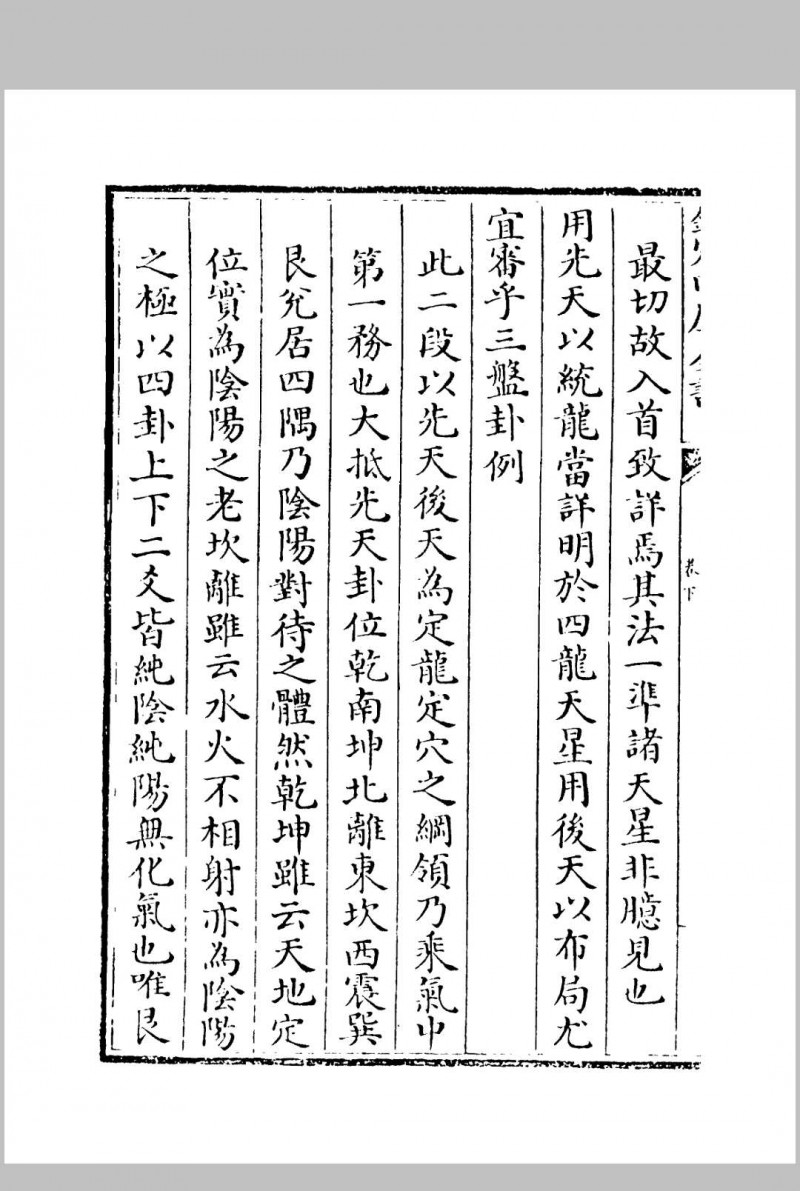 最切故入首致詳焉其法一準諸天星非臆見也
用先天以統龍當詳明於四龍天星用後天以布局尤
宜審乎三盤卦例
此二段以先天後天為定龍定穴之綱領乃乘氣中
第一務也大抵先天卦位乾南坤北離東坎西震巽
艮兊居四隅乃陰陽對待之體然乾坤雖云天地定
位實為陰陽之老坎離雖云水火不相射亦為陰陽
之極以四卦上下二爻皆純陰純陽無化氣也唯艮